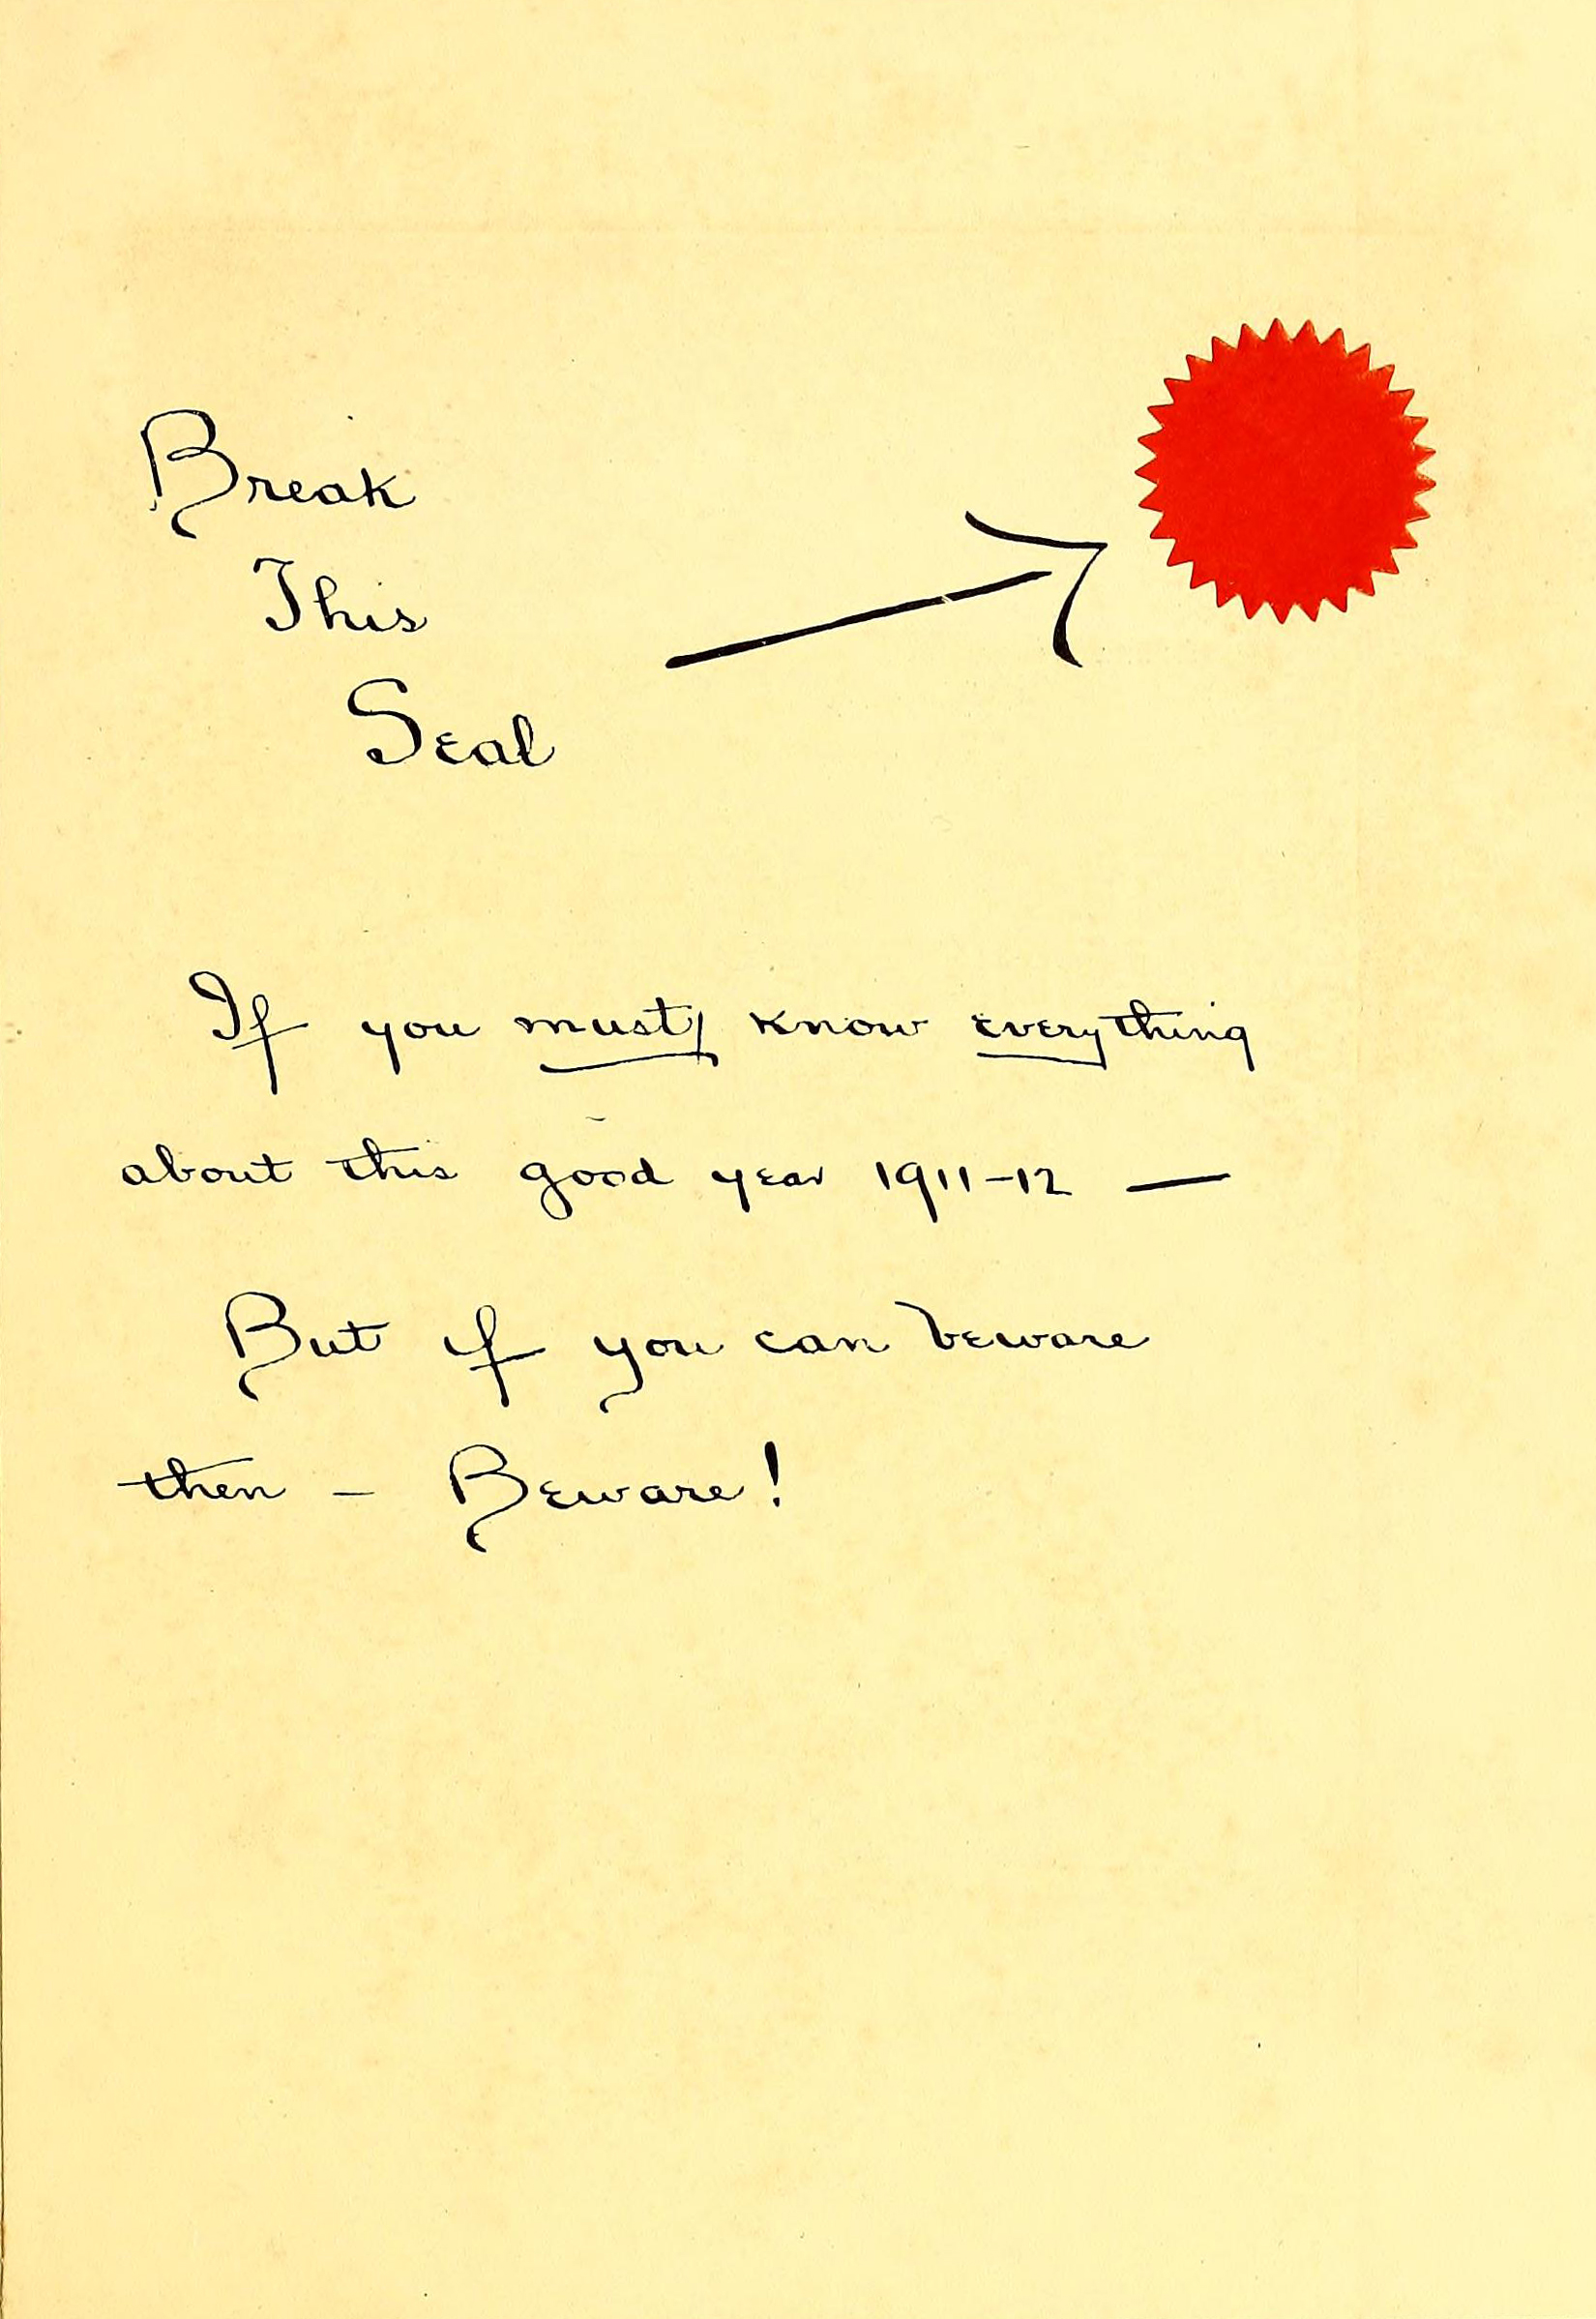 Break
This
Seal
If you must know everything
about this good year 1911-12 —
But if you can beware
then - Beware!